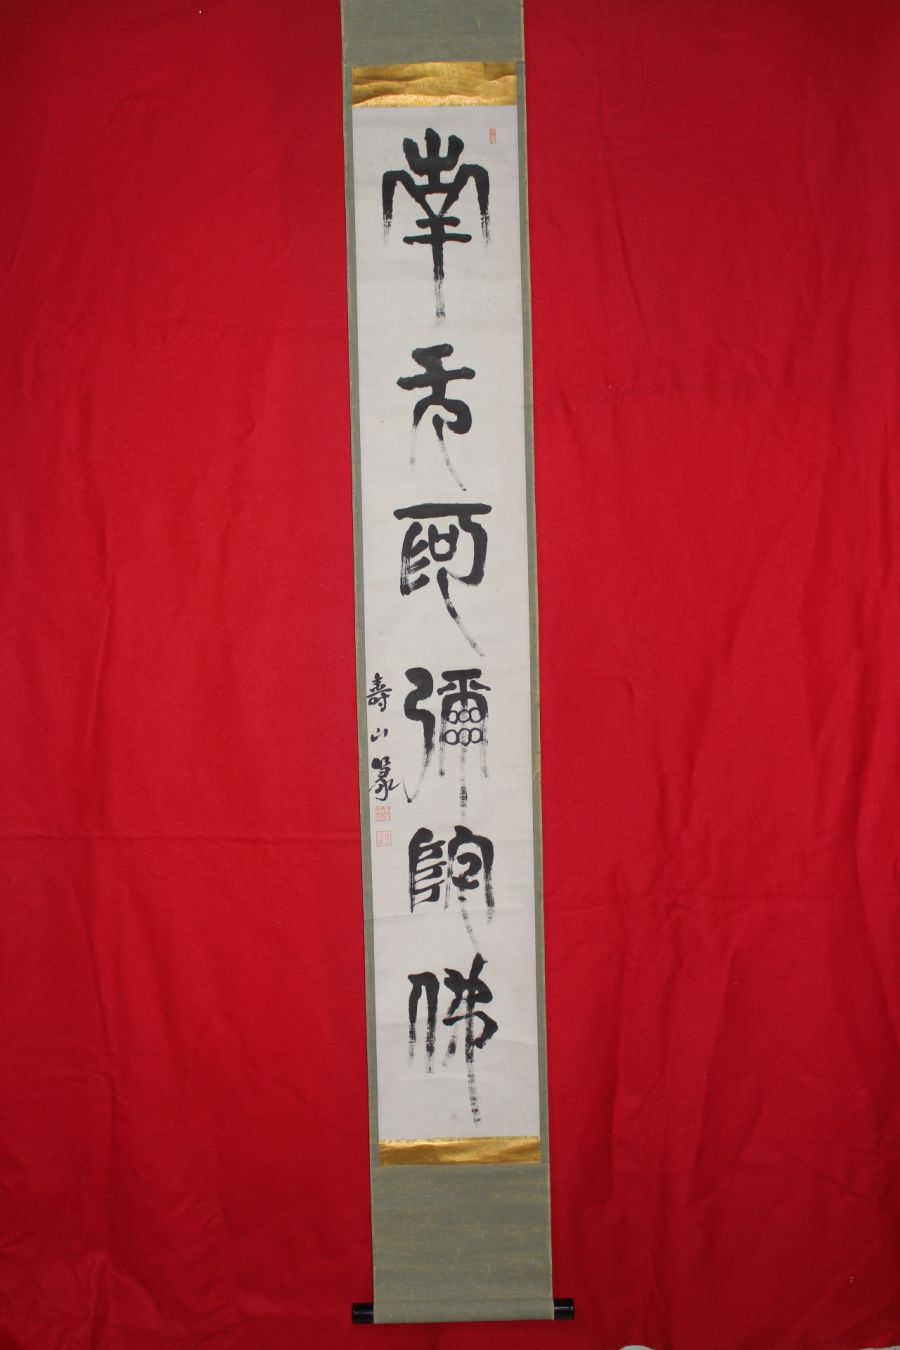 南无阿彌陀佛
壽山篆